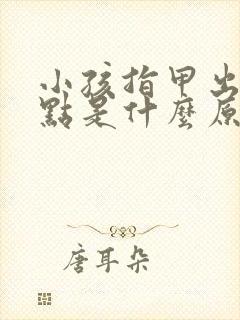 小孩指甲出
點是什麼原
唐耳朵